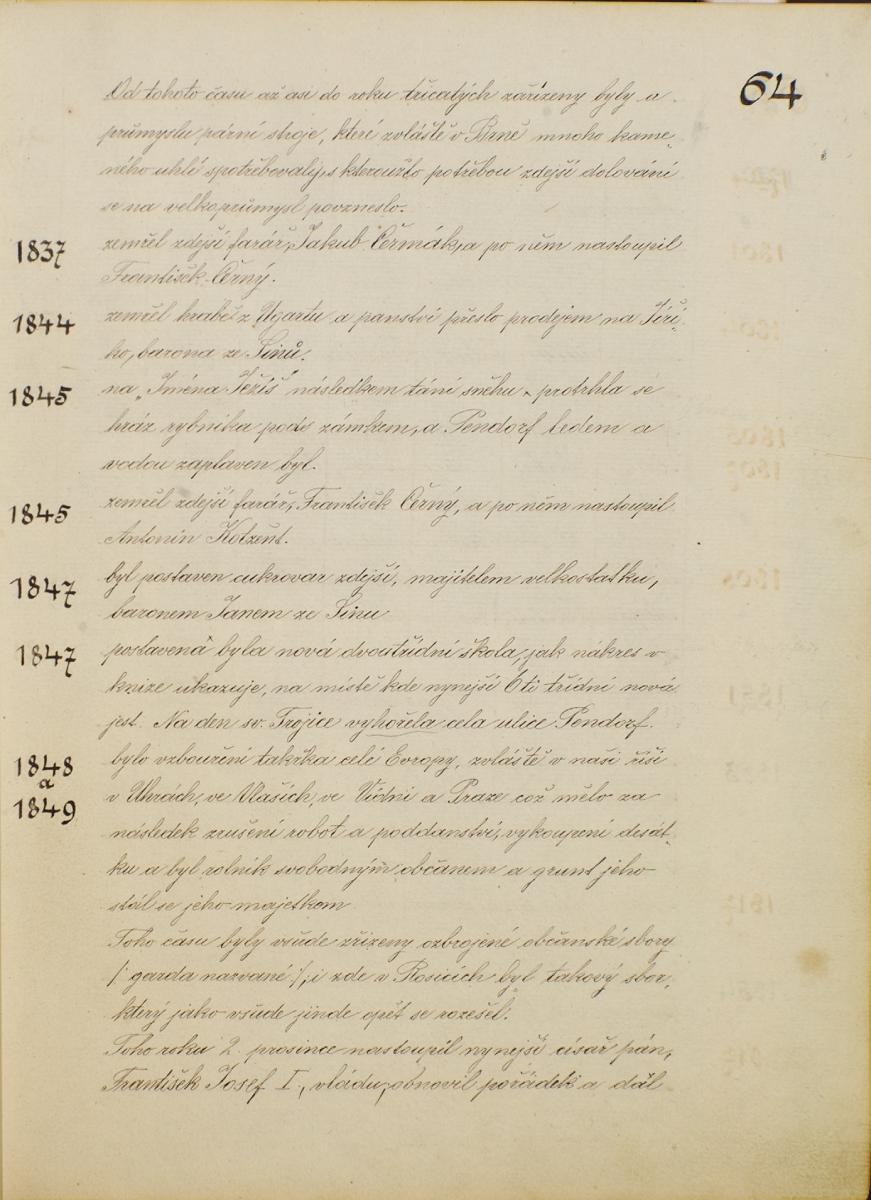 64
Od tohoto času až asi do roku třicatých zařízeny byly u
průmyslu parní stroje, které zvláště v Brně mnoho kame-
ného uhlí spotřebovaly, s kteroužto potřebou zdejší dolování
se na velkoprůmysl povzneslo.
1837 zemřel zdejší farář, Jakub Čermák, a po něm nastoupil
František Černý.
1844 zemřel hrabě z Ugartu a panství přešlo prodejem na Jiři-
ho, barona ze Sinů.
1845 na „Jména Ježíš" následkem tání sněhu protrhla se
hráz rybníka pode zámkem, a Pendorf ledem a
vodou zaplaven byl.
1845 zemřel zdejší farář, František Černý, a po něm nastoupil
Antonín Kotzént.
1847 byl postaven cukrovar zdejší, majitelem velkostatku,
baronem Janem ze Sinu
1847 postavená byla nová dvoutřídní škola, jak nákres v
knize ukazuje, na místě kde nynejší 6ti třídní nová
jest. Na den sv. Trojice vyhořela cela ulice Pendorf.
1848 bylo vzbouření takřka celé Evropy, zvláště v naší říši
a
1849 v Uhrách, ve Vlaších, ve Vídni a Praze což mělo za
následek zrušení robot a poddanství, vykoupení desát-
ku a byl rolník svobodným občanem a grunt jeho
stál se jeho majetkem
Toho času byly všude zřízeny ozbrojené občanské sbory
/: garda nazvané :/, i zde v Rosicích byl takový sbor,
který jako všude jinde opět se rozešel.
Toho roku 2. prosince nastoupil nynejší císař pán,
František Josef I., vládu, obnovil pořádek a dál